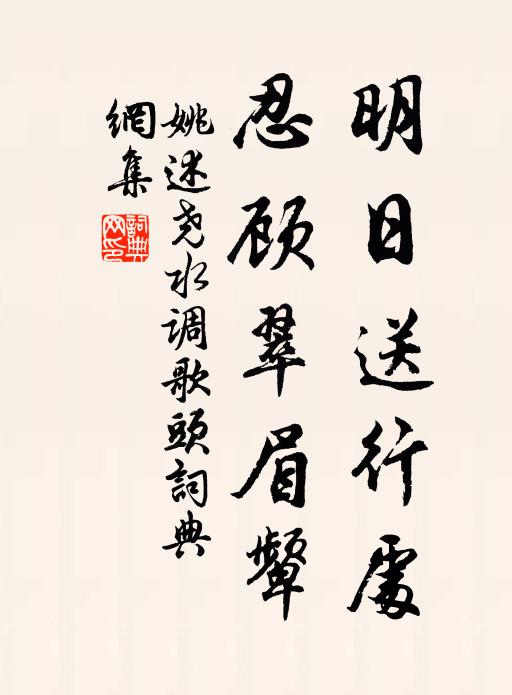 明日送行處
忍顾翠眉顰
姚述尧水调歌頭詞典
網集
詞典網印